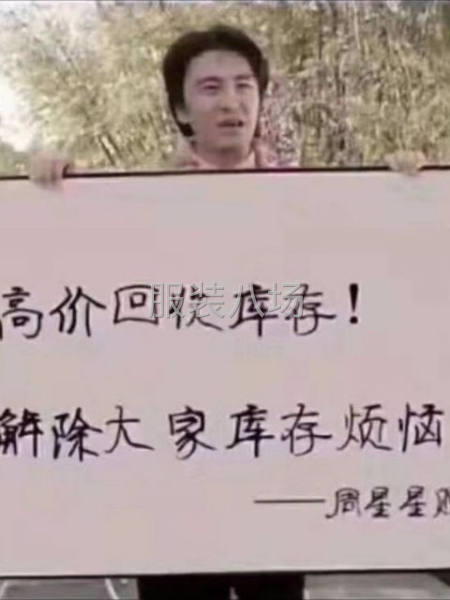 高价回收库存！
服装八场
解除大家库存烦恼
——周星星